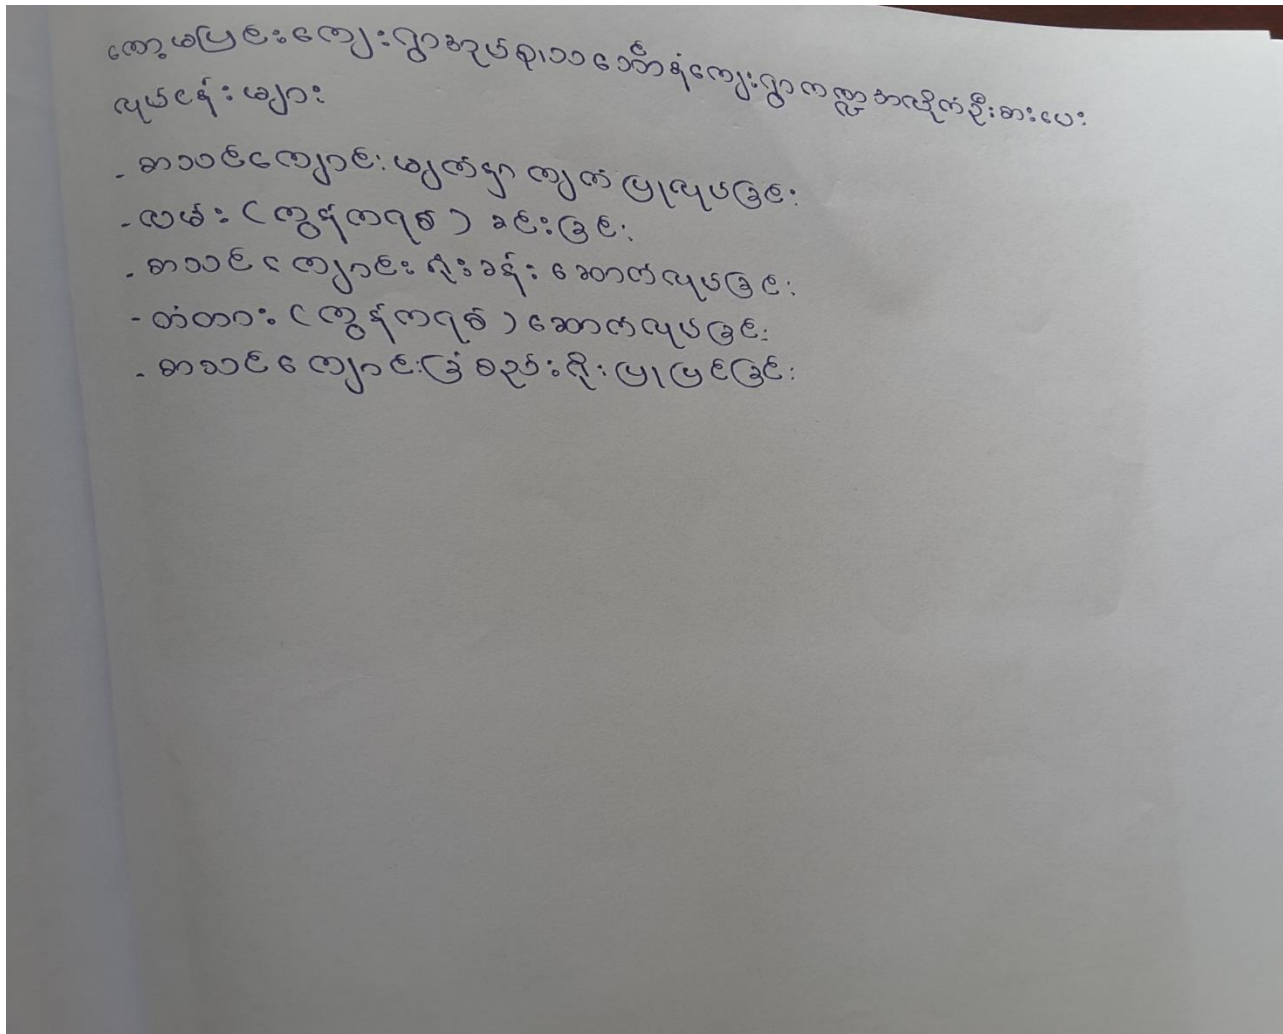 ကော့မပြင်းကျေးရွာအုပ်စု၊သင်္ဘောရုံကျေးရွာကဏ္ဍအလိုက်ဦးစားပေး
လုပ်ငန်းများ
- စာသင်ကျောင်းမျက်နှာကျက်ပြုလုပ်ခြင်း
- လမ်း (ကွန်ကရစ်) ခင်းခြင်း
- စာသင်ကျောင်းရုံးခန်းဆောက်လုပ်ခြင်း
- တံတား (ကွန်ကရစ်) ဆောက်လုပ်ခြင်း
- စာသင်ကျောင်းခြံစည်းရိုးပြုပြင်ခြင်း